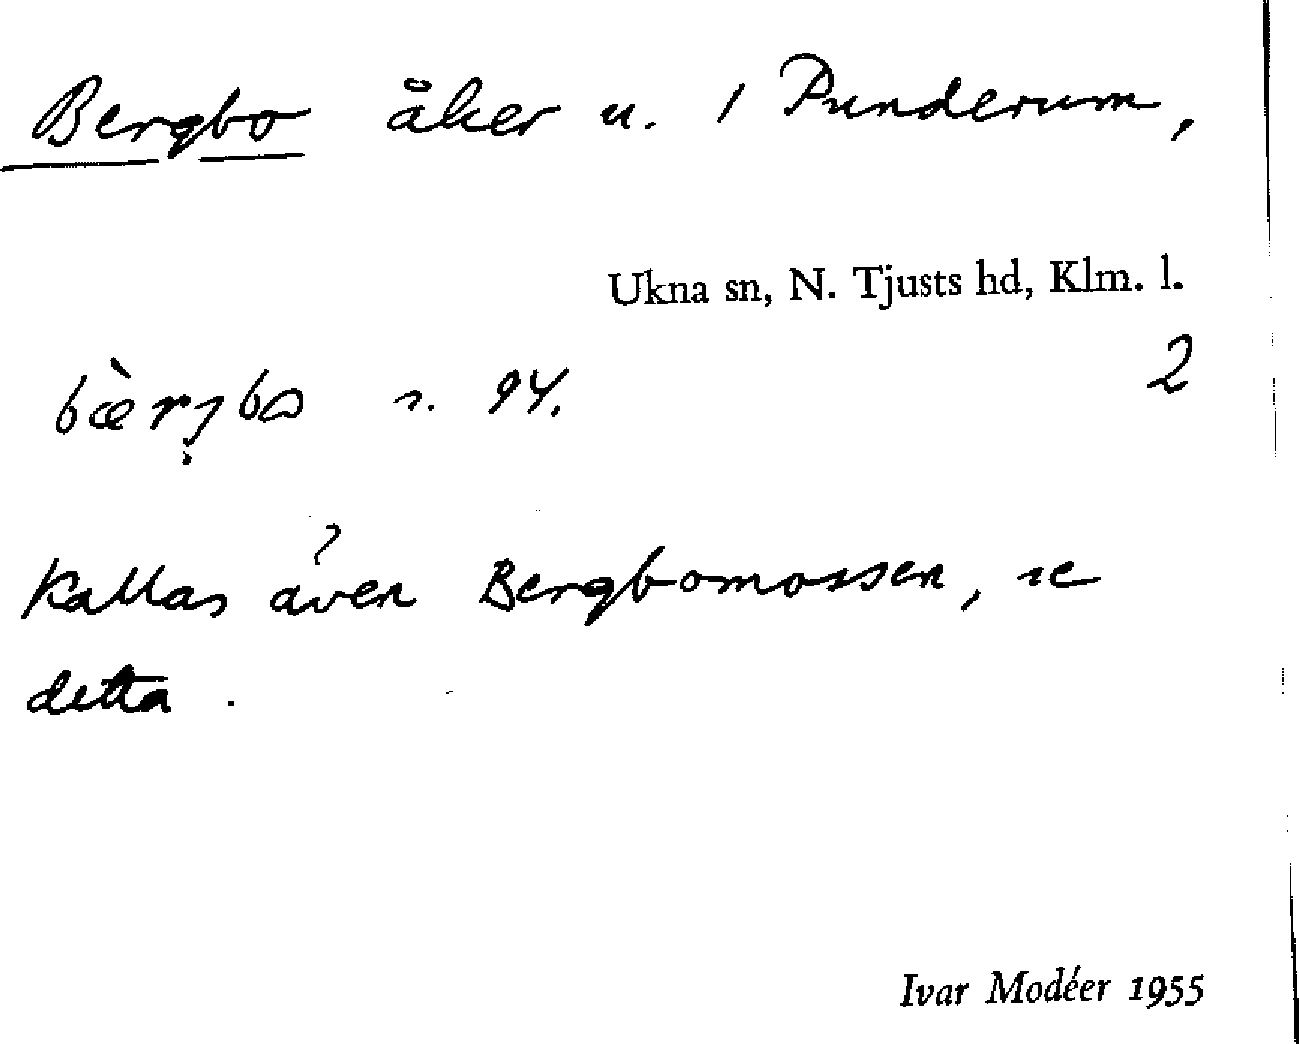 Bergbo åker u. 1 Punderum,
Ukna sn, N. Tjusts hd, Klm. l.
2
s. 94.
Kallas även Bergbomossen, se
detta.
Ivar Modéer 1955